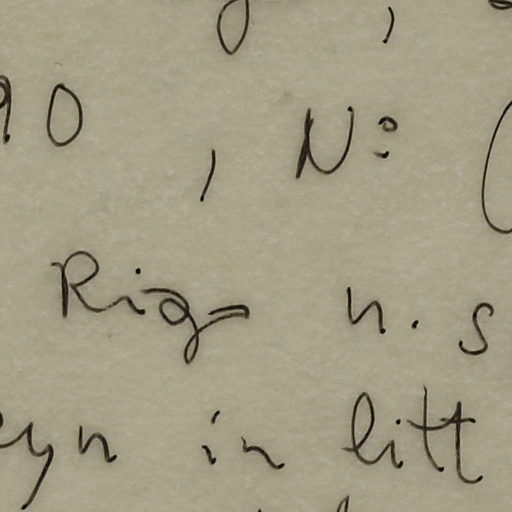 90, Nº
Rig n. s
eyn in litt